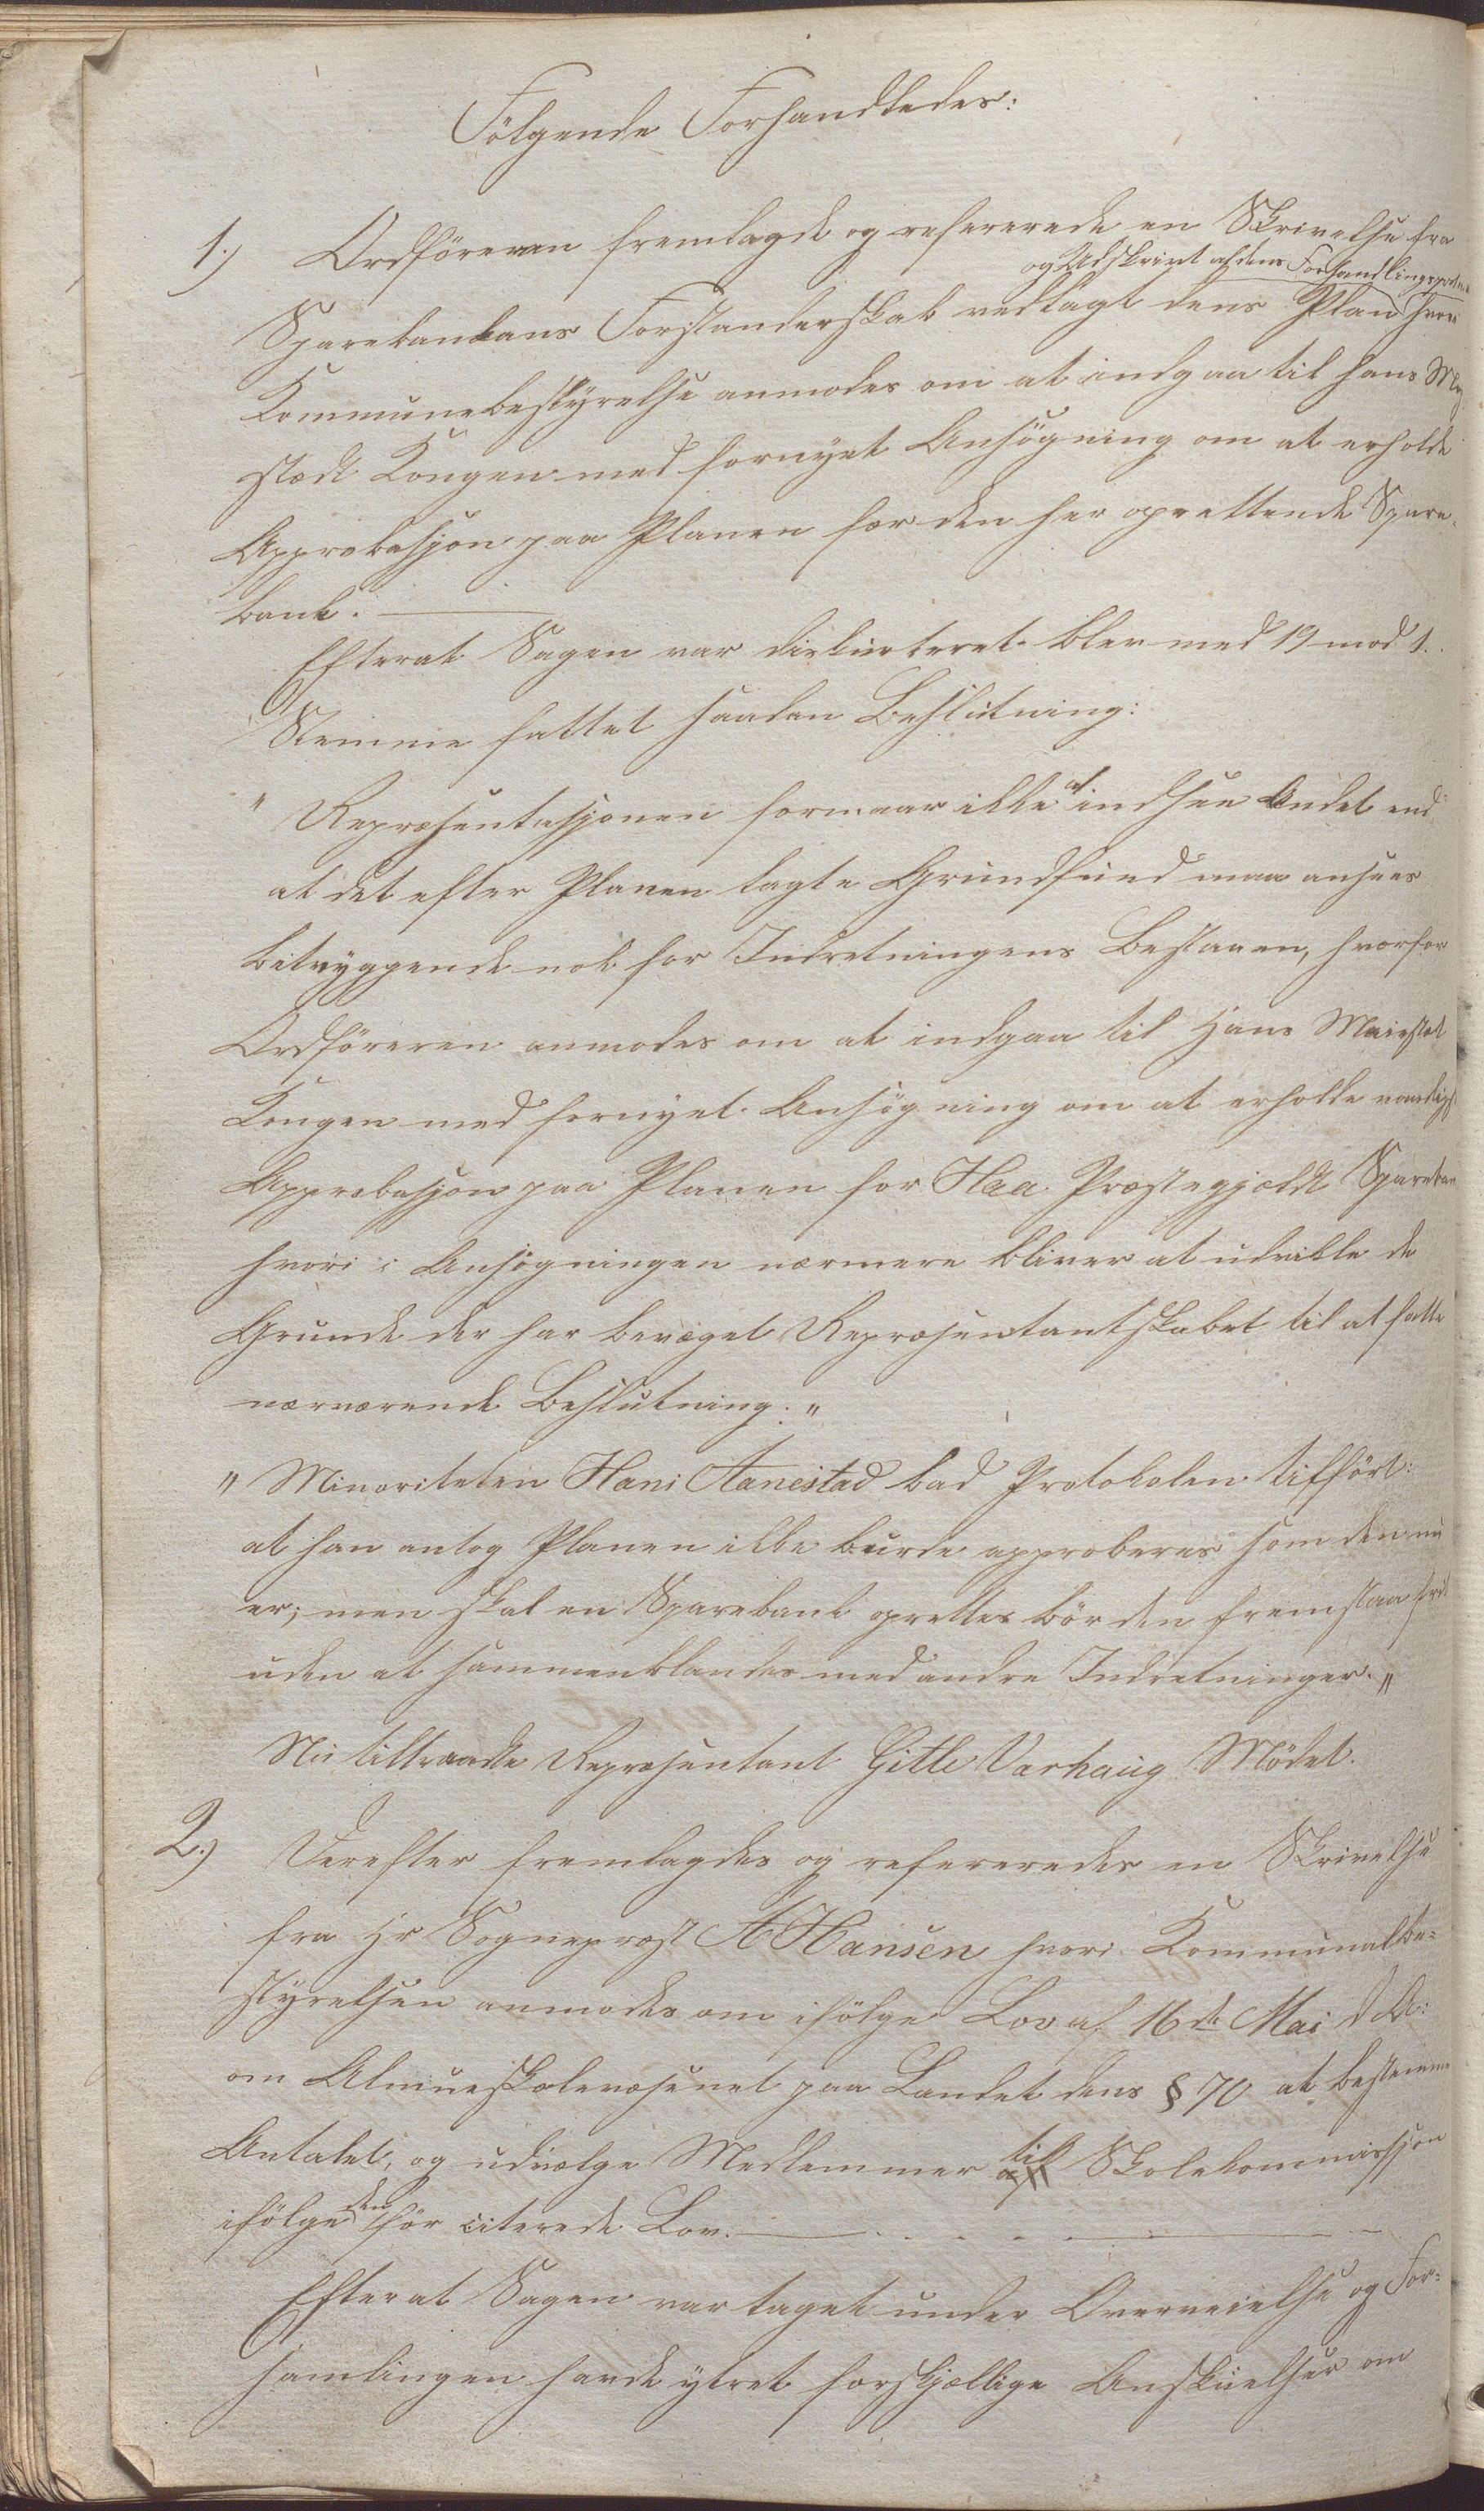 Følgende Forhandledes:
1.) Ordføreren fremlagde og refererede en Skrivelse fra
og Udskrivt af dens Forhandlingsproto
Sparebankens Forstanderskab vedlagt dens Plan hvori
Kommunebestyrelse anmodes om at indgaa til hans Maj
stædt Kongen med fornyet Ansøgning om at erholde
Approbasjon paa Planen for den her oprettende Spare-
bank.
Efterat Sagen var diskuteret blev med 19 mod 1.
Stemme fattet saadan Beslutning:
" Repræsentasjonen formaar ikke at indsee Andet end
at det efter Planen lagte Grundfund maa ansees
betryggende nok for Indretningens Bestaaen, hvorfor
Ordføreren anmodes om at indgaa til Hans Maiestæt
Kongen med fornyet Ansøgning om at erholde naadigst
Approbasjon paa Planen for Haa Præstegjældt Spareban
hvori i Ansøgningen nærmere bliver at udvikle de
Grunde der har bevæget Repræsentantskabet til at fatte
nærværende Beslutning."
" Minoriteten Hans Aanestad bad Protokolen tilført:
at han antog Planen ikke burde approberes som den nu
er; men skal en Sparebank oprettes bør den fremstaa frit
uden at sammenblandes med andre Indretninger."
Nu tiltraadte Repræsentant Gitle Varhaug Mødet.
2.) Derefter fremlagdes og refereredes en Skrivelse
fra Hr Sognepræst A Hansen hvori Kommunalbe=
styrelsen anmodes om ifølge Lov af 16de Mai d A:
om Almueskolevæsenet paa Landet dens § 70 at bestemme
Antalet, og udvælge Medlemmer til Skolekommissjon
ifølge den før citerede Lov.
Efterat Sagen var taget under Overveielse og For=
samlingen havde ytret forskjællige Anskuelser om